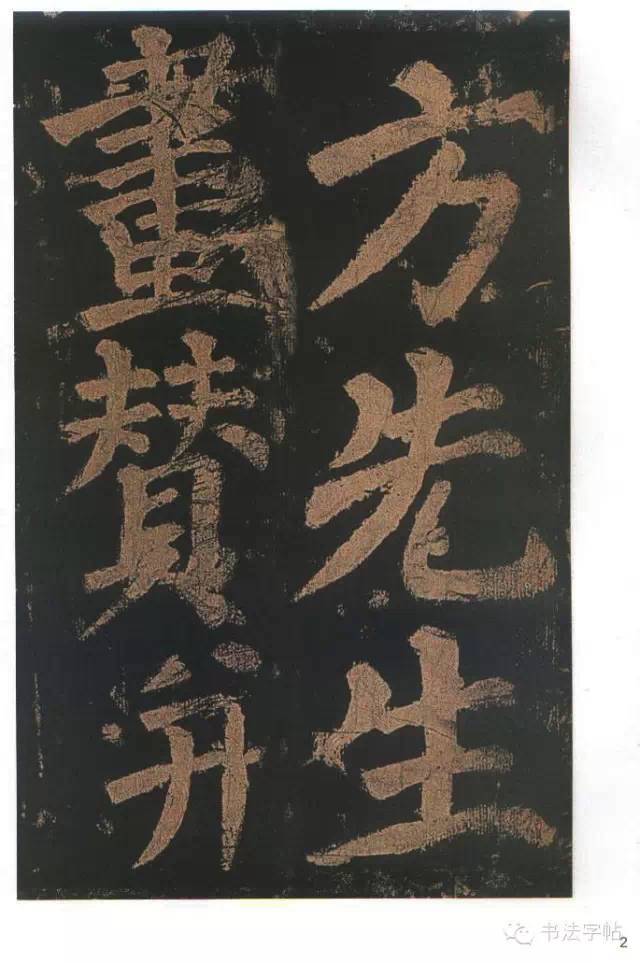 方先生
畫贊并
书法字帖
2